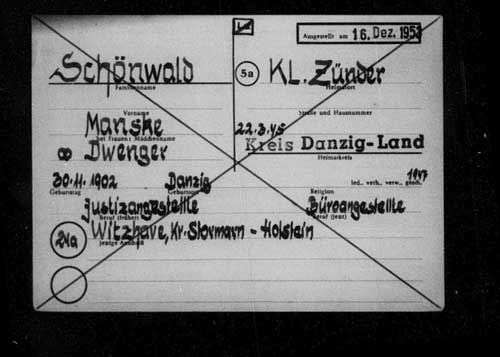 Ausgestellt am 16. Dez. 1953
Schönwald
Familienname
5a
KL. Zünder
Heimatort
Vorname
Straße und Hausnummer
Manske
bei Frauen: Mädchenname
22.3.45
∞ Dwenger
Kreis Danzig-Land
Heimatkreis
30.11.1902
Danzig
1947
Geburtstag
Geburtsort
Religion
led., verh., verw., gesch.
Justizangestellte
Büroangestellte
Beruf (früher)
Beruf (jetzt)
24a
Witzhave, Kr. Stormarn - Holstein
jetzige Anschrift